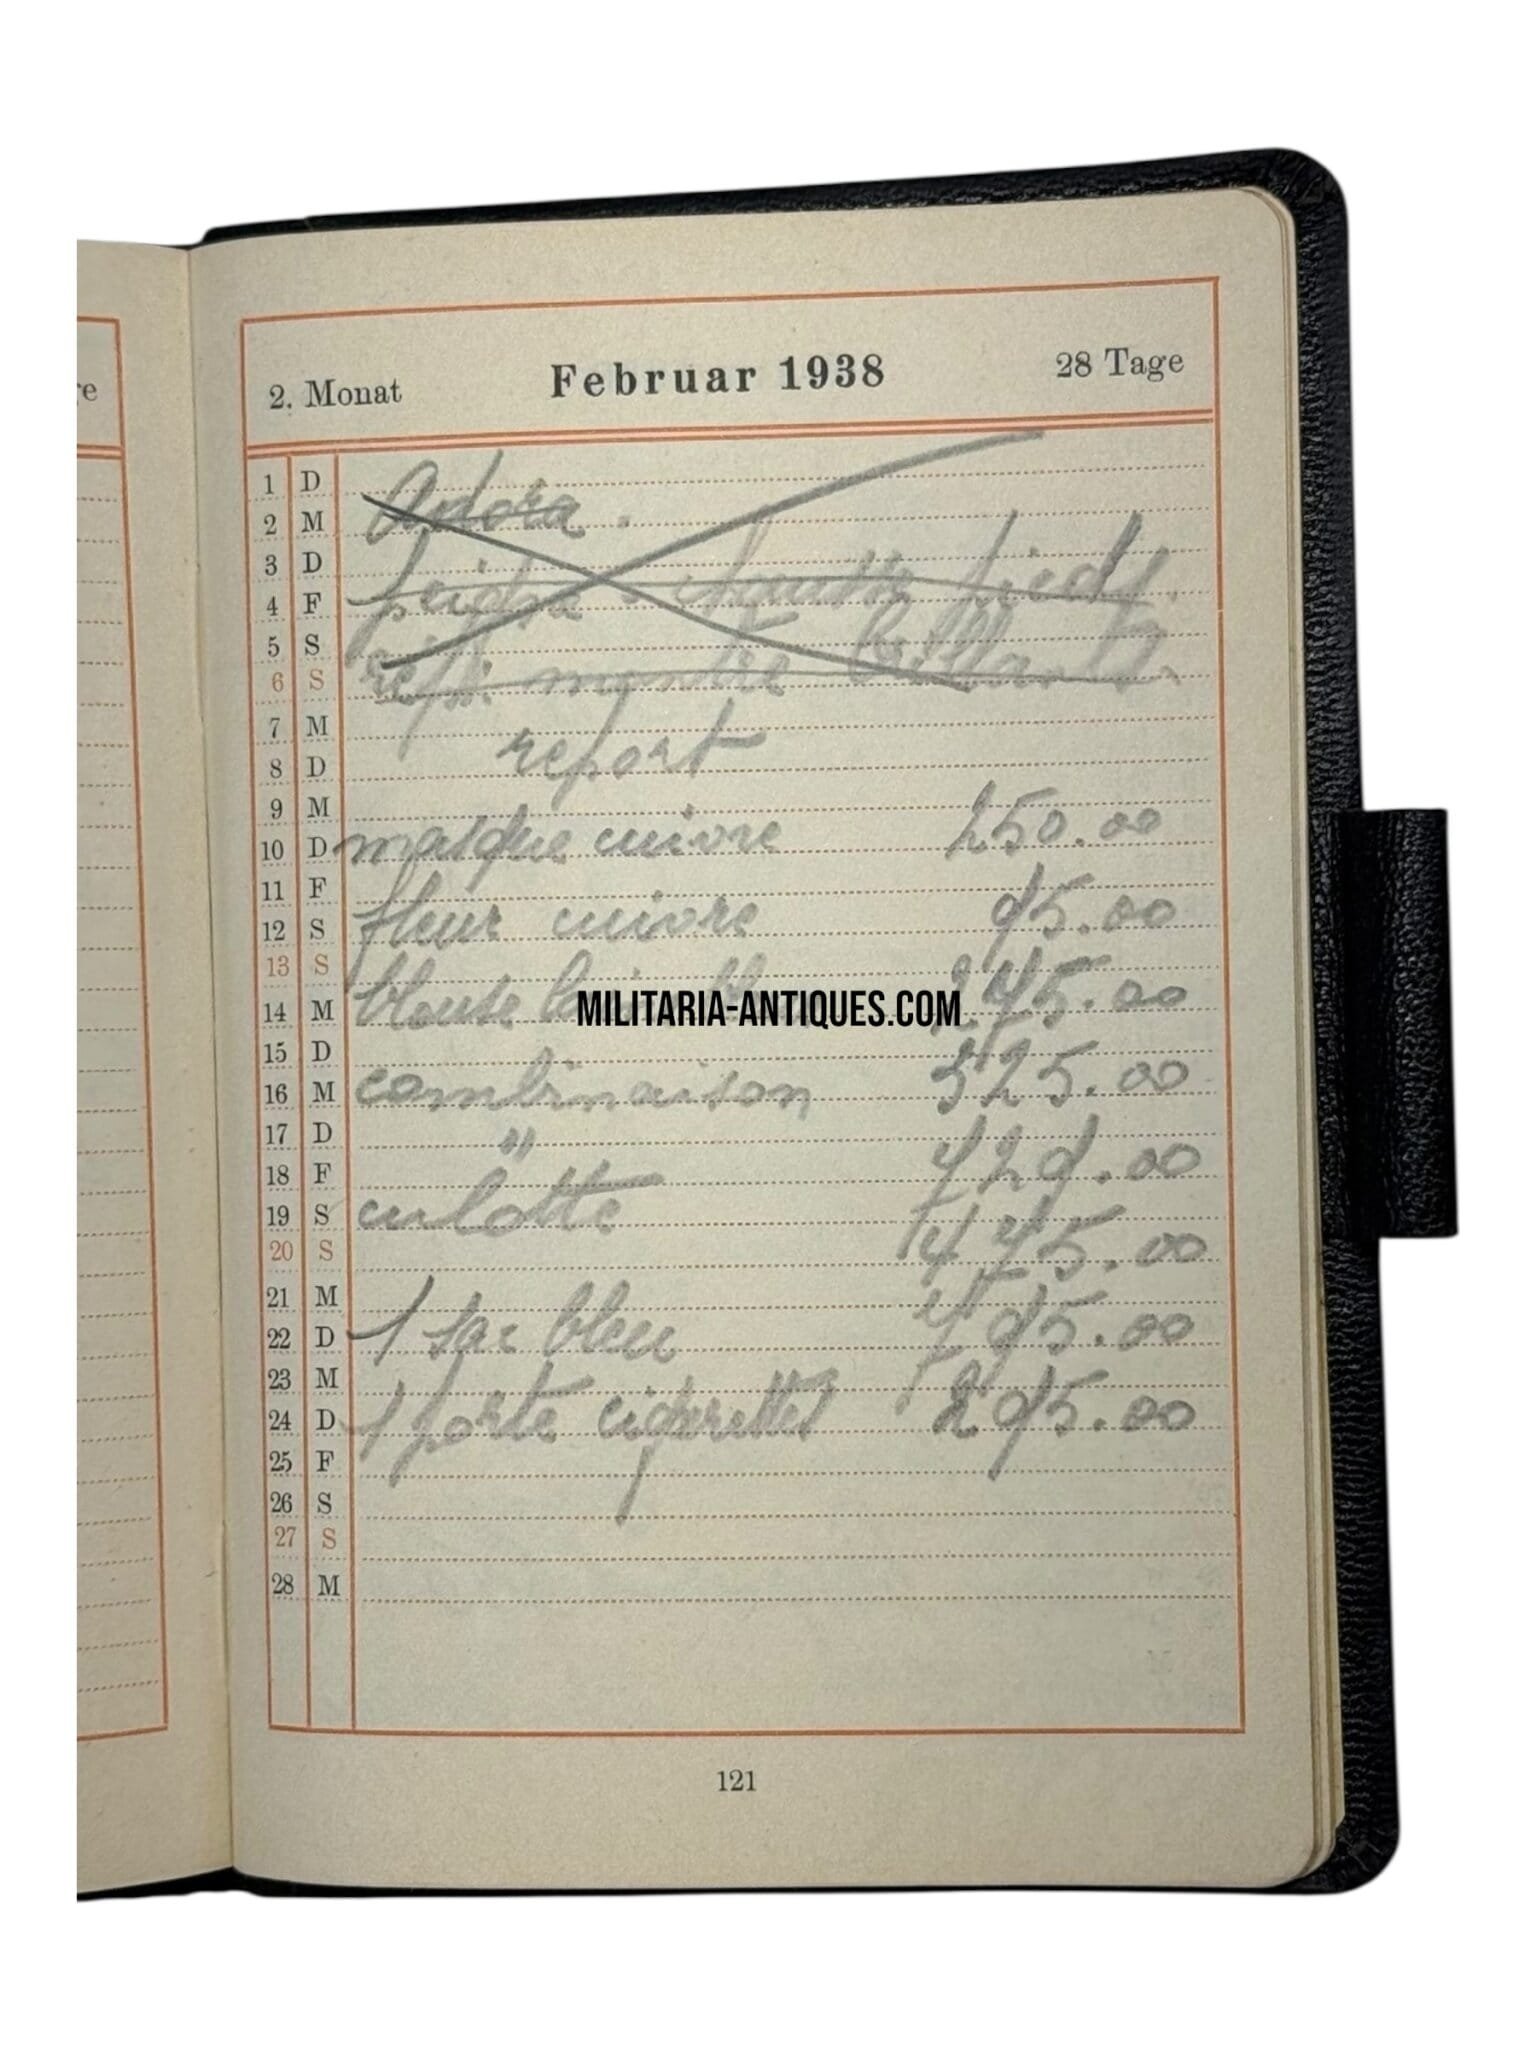 re
2. Monat Februar 1938 28 Tage
1 D
2 M Andora.
3 D
4 F peigne - chausse pieds.
5 S
6 S rép. montre brillants.
7 M
8 D report
9 M
10 D masque cuivre 250.00
11 F
12 S fleur cuivre 95.00
13 S
14 M blouse 245.00
MILITARIA-ANTIQUES.COM
15 D
16 M combinaison 525.00
17 D
18 F " 429.00
19 S culotte
20 S 445.00
21 M
22 D 1 sac bleu 495.00
23 M
24 D 1 porte cigarettes 295.00
25 F
26 S
27 S
28 M
121